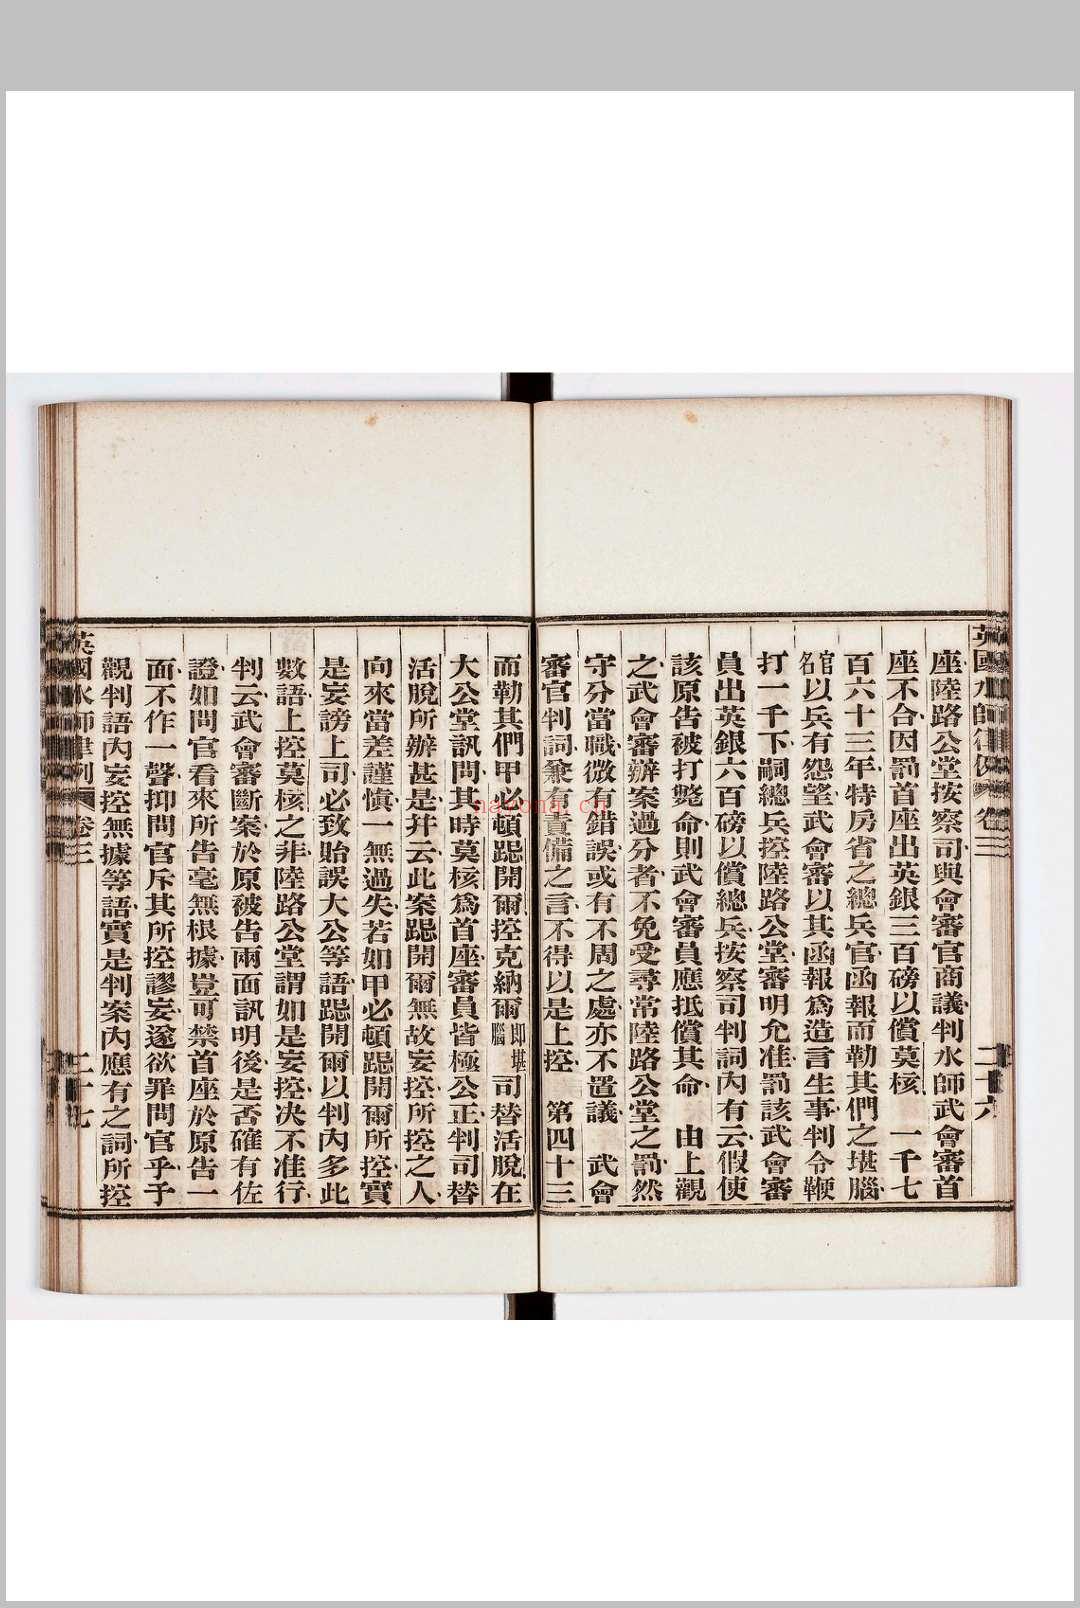 英國水師律例 卷三 二十六
座陸路公堂按察司與會審官商議判水師武會審首
座不合因罰首座出英銀三百磅以償莫核 一千七
百六十三年特房省之總兵官函報而勒其們之堪腦
官名以兵有怨望武會審以其函報爲造言生事判令鞭
打一千下嗣總兵控陸路公堂審明允准罰該武會審
員出英銀六百磅以償總兵按察司判詞內有云假使
該原告被打斃命則武會審員應抵償其命 由上觀
之武會審辦案過分者不免受尋常陸路公堂之罰然
守分當職微有錯誤或有不周之處亦不置議 武會
審官判詞兼有責備之言不得以是上控 第四十三
而勒其們甲必頓踶開爾控克納爾即堪腦司替活脫在
大公堂訊問其時莫核爲首座審員皆極公正判司替
活脫所辦甚是幷云此案踶開爾無故妄控所控之人
向來當差謹愼一無過失若如甲必頓踶開爾所控實
是妄謗上司必致貽誤大公等語踶開爾以判內多此
數語上控莫核之非陸路公堂謂如是妄控决不准行
判云武會審斷案於原被告兩面訊明後是否確有佐
證如問官看來所告毫無根據豈可禁首座於原告一
面不作一聲抑問官斥其所控謬妄遂欲罪問官乎予
觀判語內妄控無據等語實是判案內應有之詞所控
英國水師律例 卷三 二十七
nazona.cn